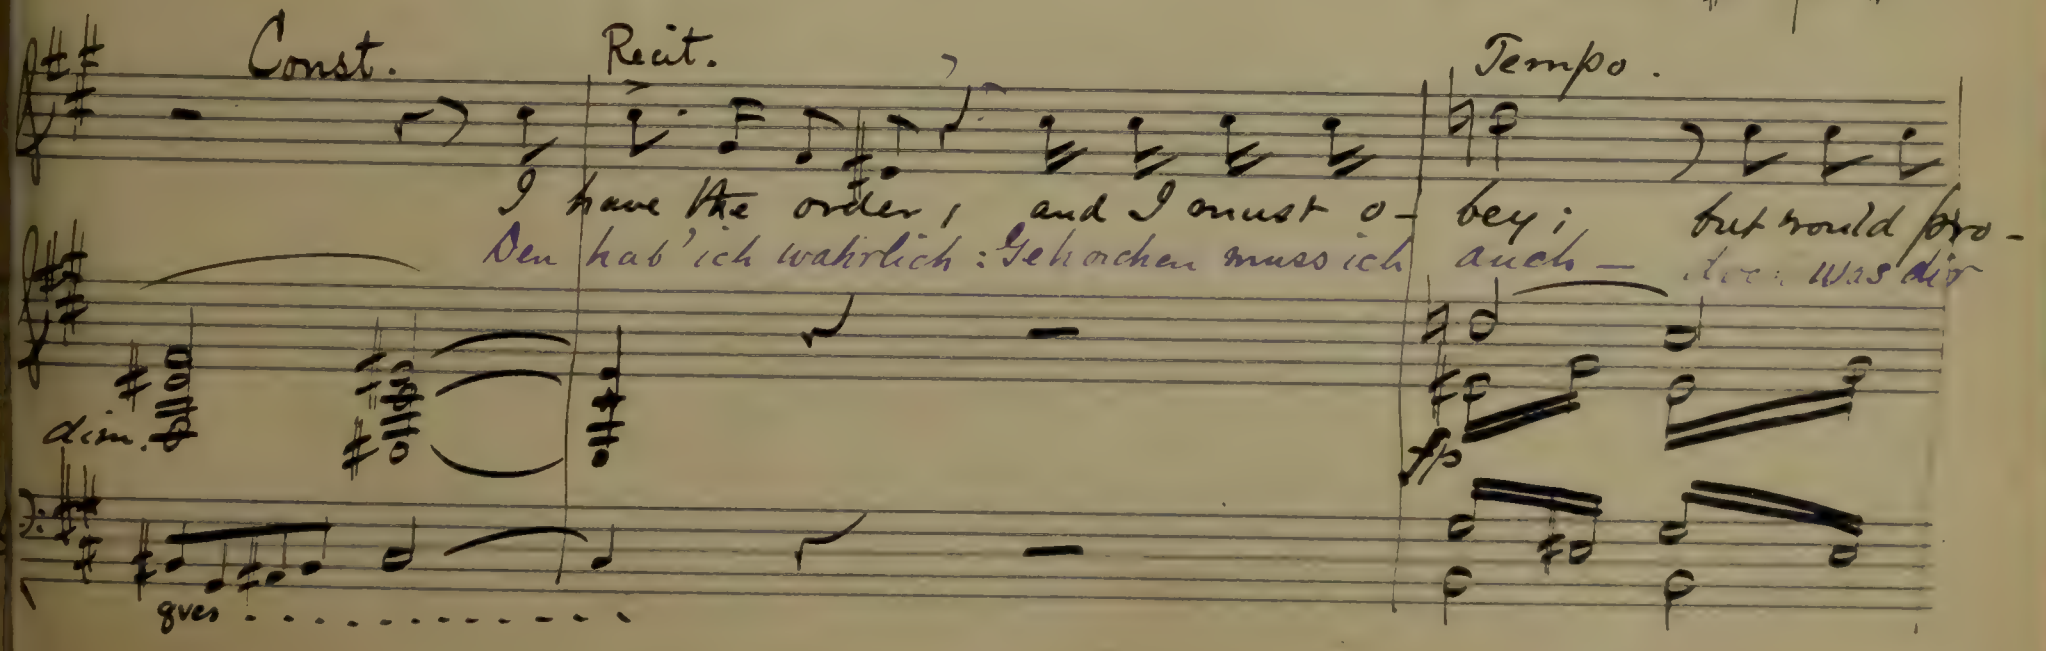 Const. Recit. Tempo.
I have the order, and I must o- bey; but would pro-
Den hab' ich wahrlich: Gehorchen muss ich auch — was dir
dim. fp
8ves